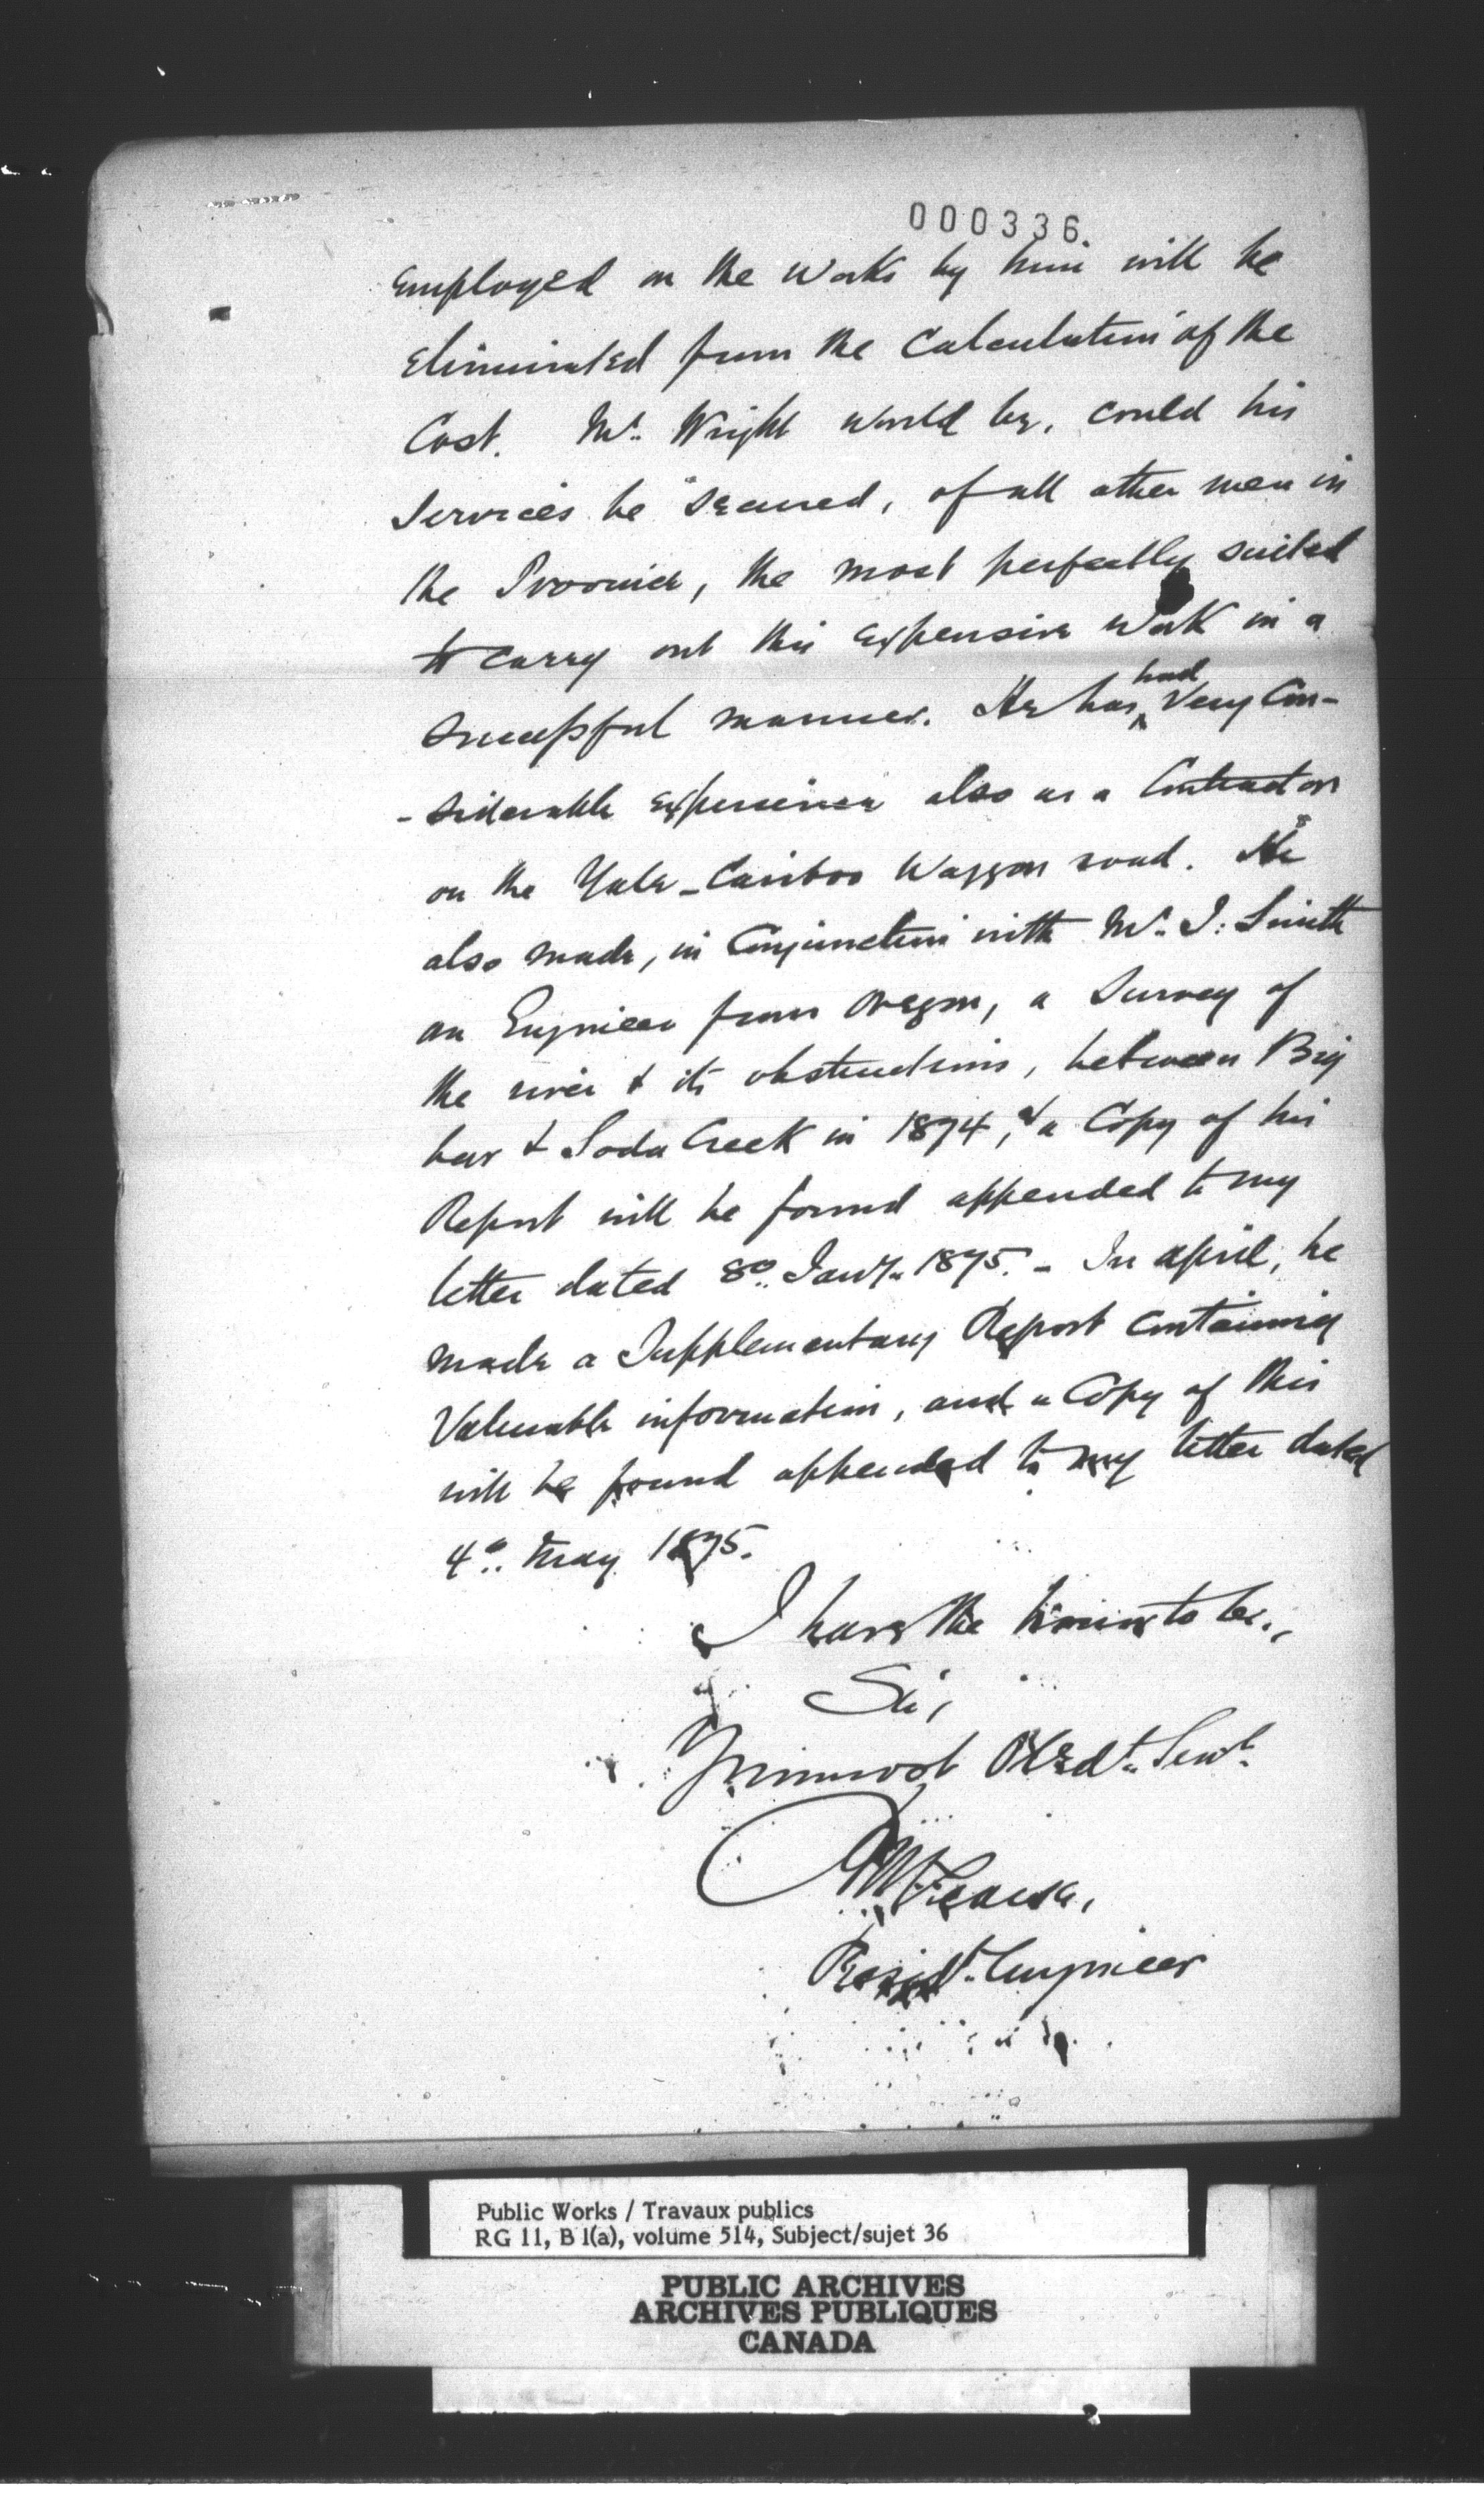 000336
employed on the works by him will be
eliminated from the Calculation of the
Cost. Mr. Wright would be, could his
Services be secured, of all other men in
the Province, the most perfectly suited
to carry out this expensive work in a
successful manner. He has had very Con-
-siderable experience also as a Contractor
on the Yale-Cariboo Waggon road. He
also made, in Conjunction with Mr. I: Smith
an Engineer from Oregon, a Survey of
the river & its obstructions, between Big
bar & Soda Creek in 1874, & a Copy of his
Report will be found appended to my
letter dated 8o. Jany. 1875. - In April, he
made a Supplementary Report containing
Valuable information, and a Copy of this
will be found appended to my letter dated
4o. May 1875.
I have the honour to be.,
Sir,
Your most Obedt. Servt.
Residt. Engineer
Public Works / Travaux publics
RG 11, B 1(a), volume 514, Subject/sujet 36
PUBLIC ARCHIVES
ARCHIVES PUBLIQUES
CANADA